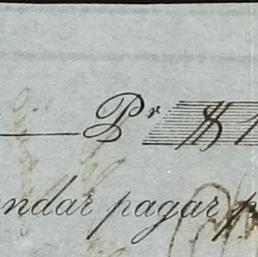 Pr $
ndar pagar p